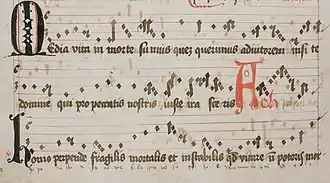 Media vita in morte sumus quez querimus adiutorem nisi te
domine qui pro peccatis nostris iuste ira sceris Ach
Homo perpende fragilis mortalis et instabilis qd vitare n poteris mor